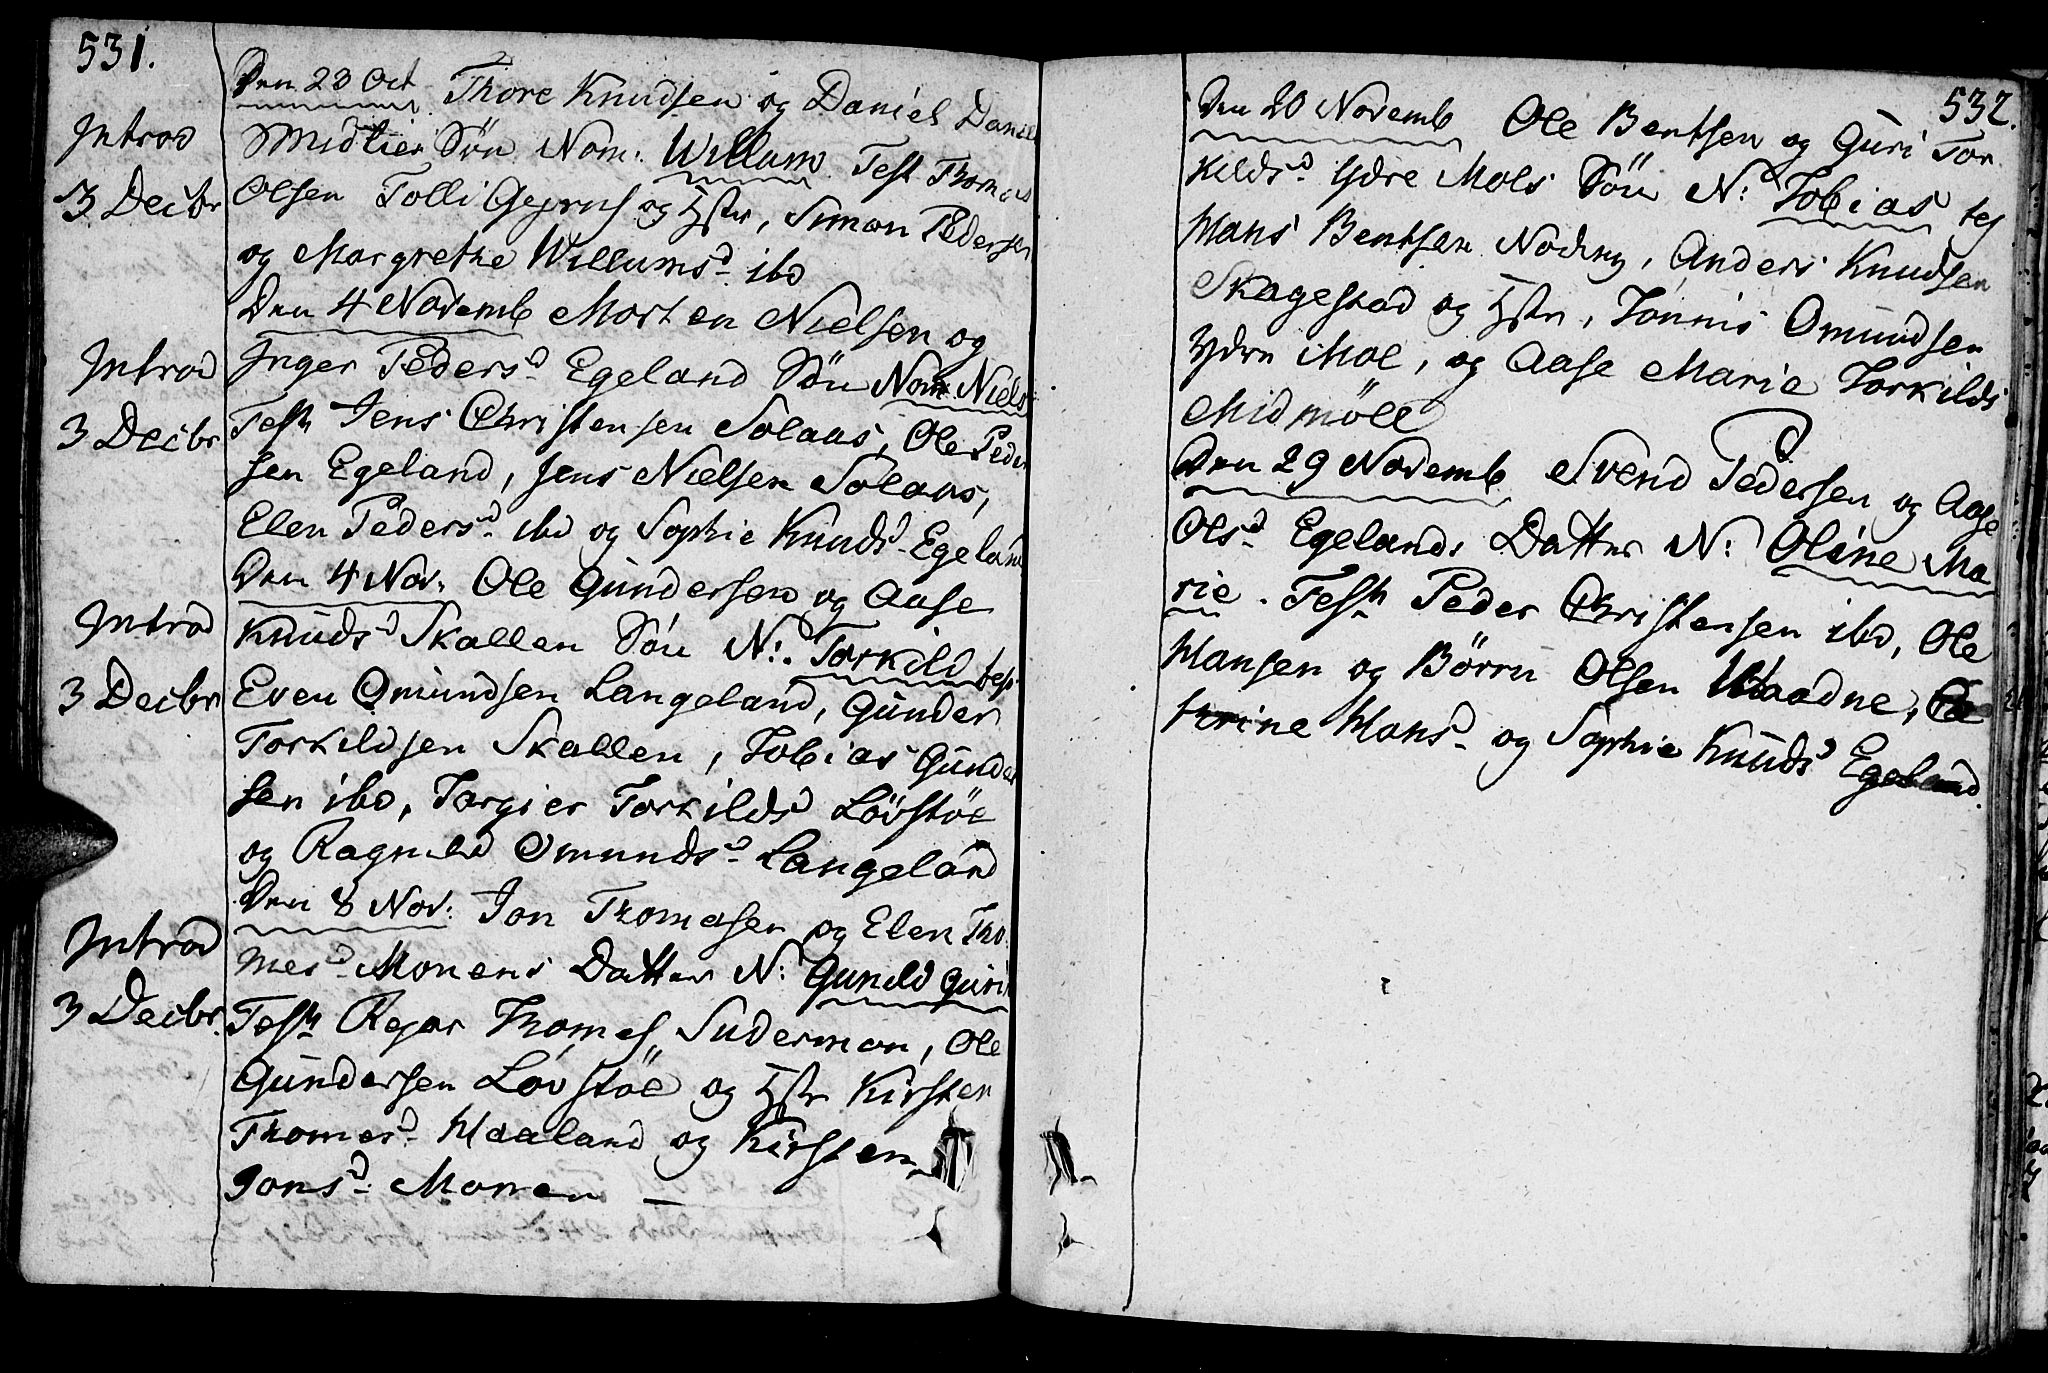 531.
Den 23 Oct Thore Knudsen og Daniel Daniel
Introd Midtier Søn Nom: Willum Test Thomas
3 Decbr Olsen Tolli Gejruf og Hstr, Simon Pedersen
og Margrethe Willumsd ibd
Den 4 Novemb Morten Nielsen og
Introd Inger Pedersd Egeland Søn Nom Niels
3 Decbr Test Jens Christensen Solaas, Ole Peder
sen Egeland, Jens Nielsen Solaas,
Elen Pedersd ibd og Sophie Knudsd Egeland
Den 4 Nov: Ole Gundersen og Aase
Introd Knudsd Skallen Søn N: Torkild test
3 Decbr Even Omundsen Langeland, Gunder
Torkildsen Skallen, Tobias Gunder
sen ibd, Torgier Torkildsd Løvstøe
og Ragnild Omundsd Langeland
Den 8 Nov: Jon Thomesen og Elen Tho
Introd mesd Monens Datter N: Gunild Guri
3 Decbr. Test Rejar Thomes Suderman, Ole
Gundersen Løvstøe og Hstr Kirsten
Thomesd Haaland og Kirsten
Jonsd Monen —
532.
Den 20 Novemb Ole Bentsen og Guri Tor
kildsd Ydre Mols Søn N: Tobias tes
Hans Bentsen Noding, Anders Knudsen
Skagestad og Hstr, Tønnis Omundsen
Ydre Moe, og Aase Marie Torkilds
Midmøll
Den 29 Novemb Svend Pedersen og Aase
Olsd Egelands Datter N: Oline Ma
rie. Test Peder Christensen ibd, Ole
Hansen og Børru Olsen Udaadne, Ca
trine Hansd og Sophie Knudsd Egeland.